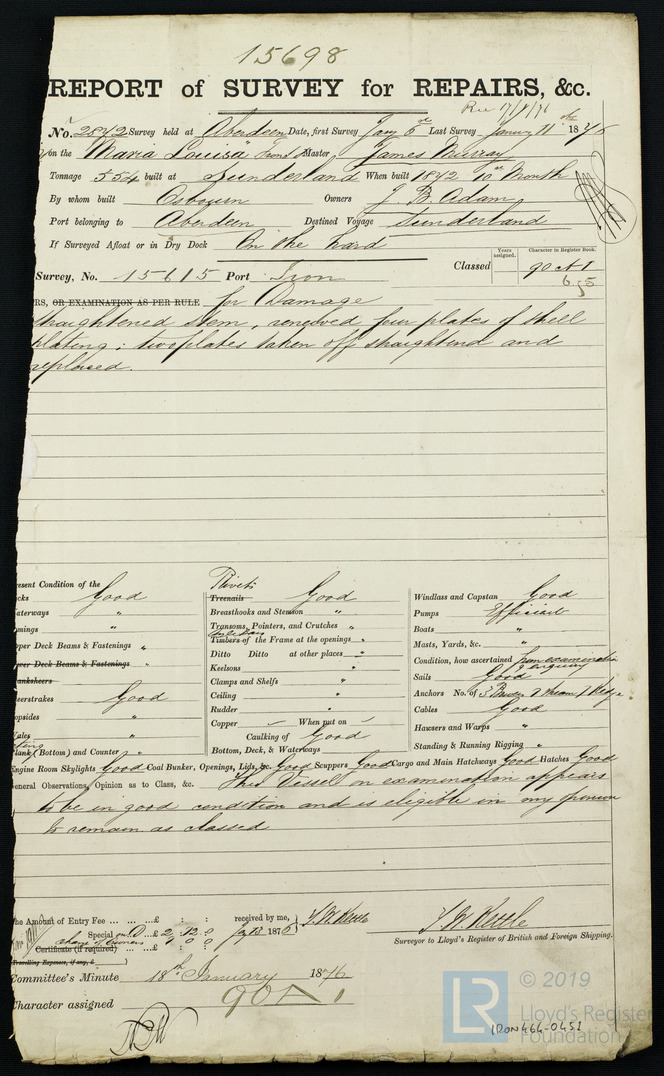 15698
REPORT of SURVEY for REPAIRS, &c.
Rec 17/1/76
No. 2842 Survey held at Aberdeen Date, first Survey Jany 6th Last Survey January 11th 1876
on the "Maria Louisa" Iron Master James Murray
Tonnage 554 built at Sunderland When built 1872 10th Month
By whom built Osbourn Owners J. B. Adam
Port belonging to Aberdeen Destined Voyage Sunderland
If Surveyed Afloat or in Dry Dock On the hard
Years assigned. Character in Register Book.
Survey, No. 15615 Port Iron Classed 90 A 1
6,5
RS, OR EXAMINATION AS PER RULE for Damage
straightened stem, renewed four plates of shell
plating; two plates taken off straightend and
replaced.
resent Condition of the
cks Good
aterways "
mings "
pper Deck Beams & Fastenings "
wer Deck Beams & Fastenings "
anksheers
eerstrakes Good
opsides "
ales "
lank (Bottom) and Counter "
Rivets
Treenails Good
Breasthooks and Stemson "
Transoms, Pointers, and Crutches "
Timbers of the Frame at the openings "
Ditto Ditto at other places "
Keelsons "
Clamps and Shelfs "
Ceiling "
Rudder "
Copper — When put on —
Caulking of Good
Bottom, Deck, & Waterways
Windlass and Capstan Good
Pumps Efficient
Boats "
Masts, Yards, &c. "
Condition, how ascertained from examination & enquiry
Sails Good
Anchors No. of 3 Bower 1 Stream 1 Kedge
Cables Good
Hawsers and Warps "
Standing & Running Rigging "
Engine Room Skylights Good Coal Bunker, Openings, Lids, &c. Good Scuppers Good Cargo and Main Hatchways Good Hatches Good
eneral Observations, Opinion as to Class, &c. This Vessel on examination appears
to be in good condition and is eligible in my opinion
to remain as classed
he Amount of Entry Fee ... ... ...£ : : received by me,
Special ... D. £ 2 : 12 : 0 1876 J. W. Kettle
Certificate (if required) ... ... ... 0 0
Travelling Expenses, if any, £
J W Kettle
Surveyor to Lloyd's Register of British and Foreign Shipping.
Committee's Minute 18th January 1876
Character assigned 90 A 1
© 2019
LR
Lloyd's Register
Foundation
IRON464-0451